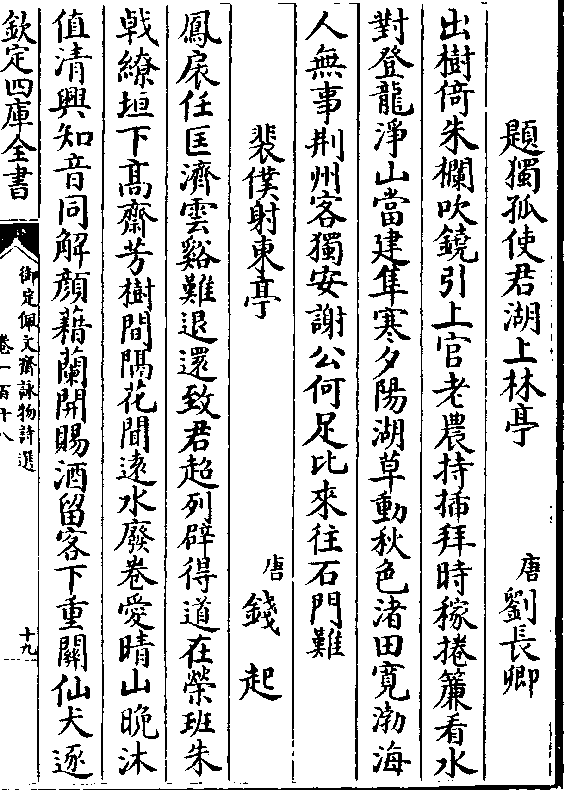 題獨孤使君湖上林亭　唐劉長卿
出樹倚朱欄吹鐃引上官老農持揷拜時稼捲簾看水
對登龍淨山當建隼寒夕陽湖草動秋色渚田寛渤海
人無事荆州客獨安謝公何足比來往石門難
裴僕射東亭　唐錢起
鳳扆任匡濟雲谿難退還致君超列辟得道在榮班朱
戟繚垣下髙齋芳樹間隔花聞逺水廢卷愛晴山晚沐
值清興知音同解顔藉蘭開賜酒留客下重關仙犬逐
欽定四庫全書
御定佩文齋詠物詩選
卷一百十八
十九